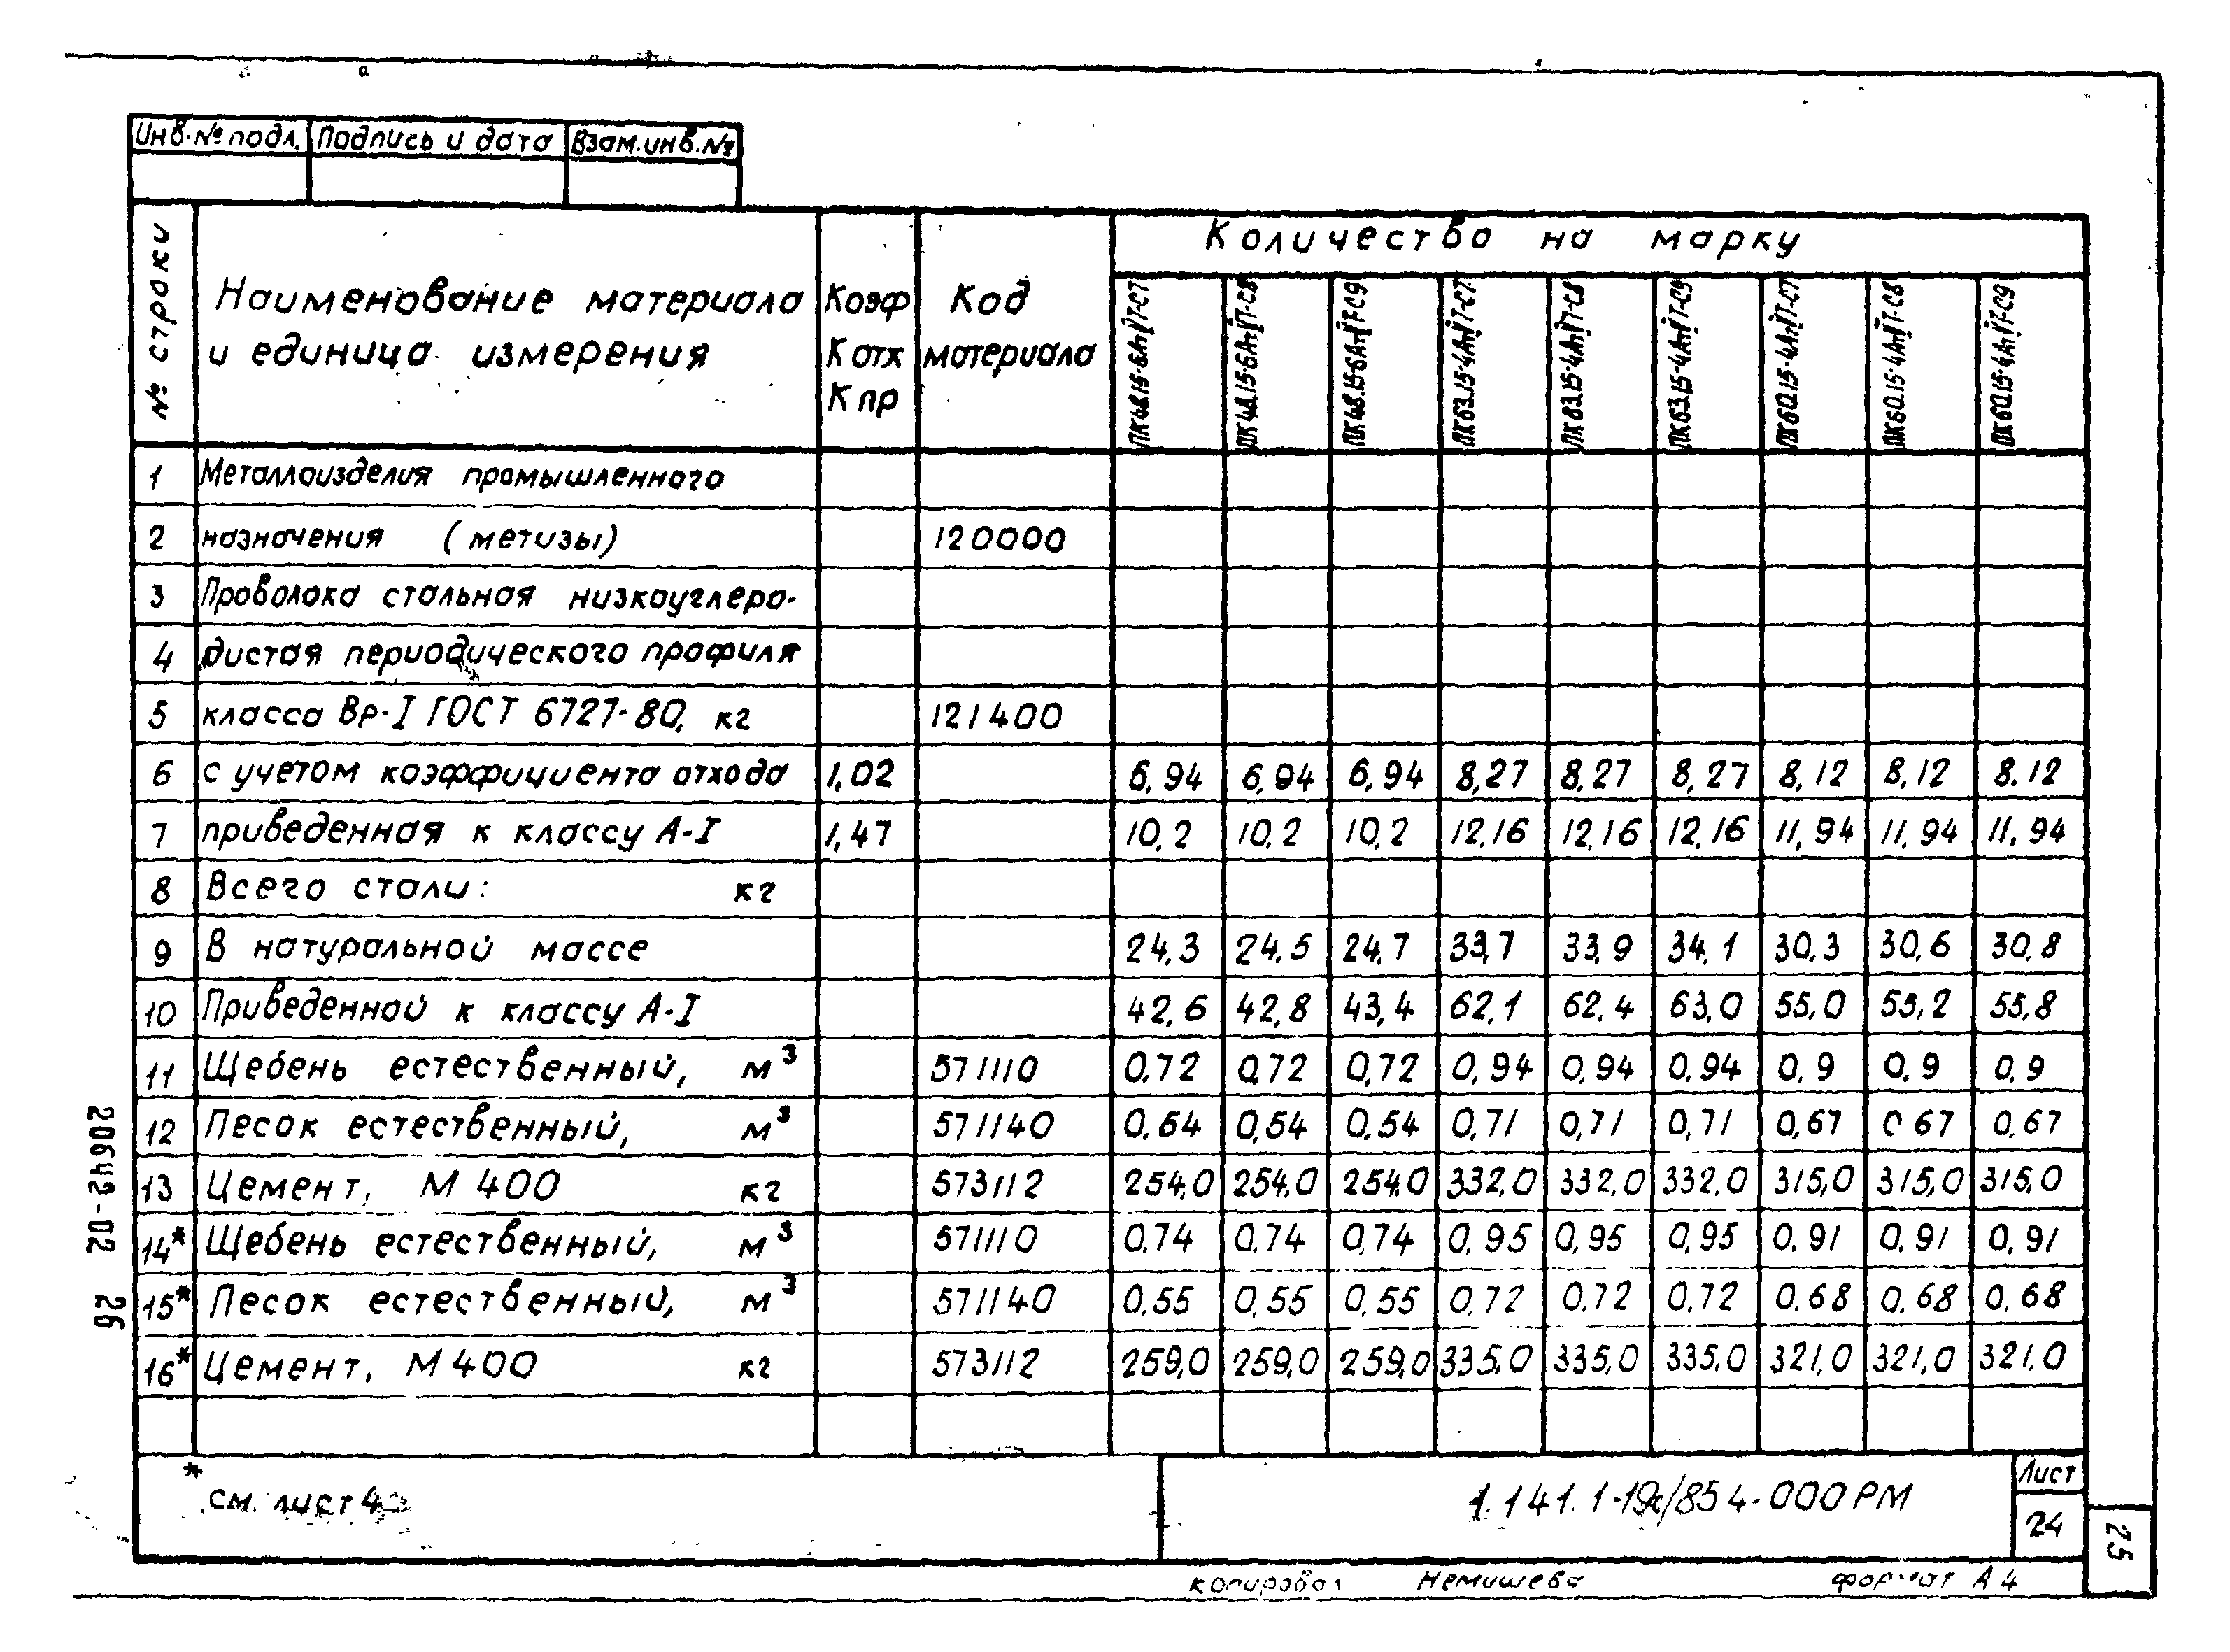 Инв.№ подл. Подпись и дата Взам.инв.№
№ строки Наименование материала и единица измерения Коэф К отх К пр Код материала Количество на марку
ПК48.15-6АтVТ-С7 ПК48.15-6АтVТ-С8 ПК48.15-6АтVТ-С9 ПК63.15-4АтVТ-С7 ПК63.15-4АтVТ-С8 ПК63.15-4АтVТ-С9 ПК60.15-4АтVТ-С7 ПК60.15-4АтVТ-С8 ПК60.15-4АтVТ-С9
1 Металлоизделия промышленного
2 назначения (метизы) 120000
3 Проволока стальная низкоуглеро-
4 дистая периодического профиля
5 класса Вр-I ГОСТ 6727-80, кг 121400
6 с учетом коэффициента отхода 1,02 6,94 6,94 6,94 8,27 8,27 8,27 8,12 8,12 8.12
7 приведенная к классу А-I 1,47 10,2 10,2 10,2 12,16 12,16 12,16 11,94 11,94 11,94
8 Всего стали: кг
9 В натуральной массе 24,3 24,5 24,7 33,7 33,9 34,1 30,3 30,6 30,8
10 Приведенной к классу А-I 42,6 42,8 43,4 62,1 62,4 63,0 55,0 55,2 55,8
11 Щебень естественный, м³ 571110 0.72 0,72 0,72 0,94 0,94 0,94 0,9 0,9 0,9
12 Песок естественный, м³ 571140 0.54 0,54 0.54 0,71 0,71 0,71 0,67 0 67 0,67
13 Цемент, М 400 кг 573112 254,0 254,0 254,0 332,0 332,0 332,0 315,0 315,0 315,0
14* Щебень естественный, м³ 571110 0.74 0.74 0,74 0,95 0,95 0,95 0,91 0,91 0,91
15* Песок естественный, м³ 571140 0,55 0,55 0,55 0,72 0.72 0.72 0.68 0.68 0.68
16* Цемент, М 400 кг 573112 259,0 259,0 259,0 335,0 335,0 335,0 321,0 321,0 321,0
* см. лист 4
1.141.1-19с/85 4-000 РМ
Лист
24
25
20642-02 26
копировал Немишева формат А4